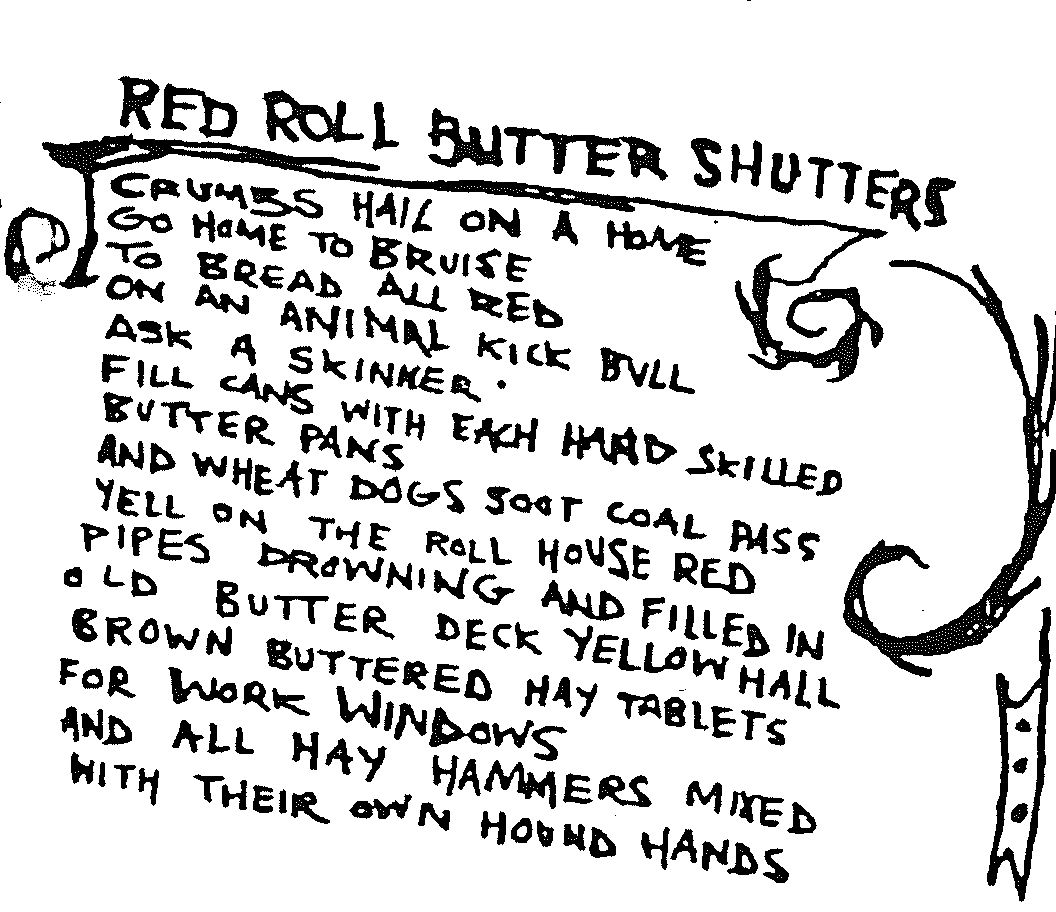 RED ROLL BUTTER SHUTTERS
CRUMBS HAIL ON A HOME
GO HOME TO BRUISE
TO BREAD ALL RED
ON AN ANIMAL KICK BULL
ASK A SKINKER.
FILL CANS WITH EACH HAND SKILLED
BUTTER PANS
AND WHEAT DOGS SOOT COAL PASS
YELL ON THE ROLL HOUSE RED
PIPES DROWNING AND FILLED IN
OLD BUTTER DECK YELLOW HALL
BROWN BUTTERED HAY TABLETS
FOR WORK WINDOWS
AND ALL HAY HAMMERS MIXED
WITH THEIR OWN HOUND HANDS